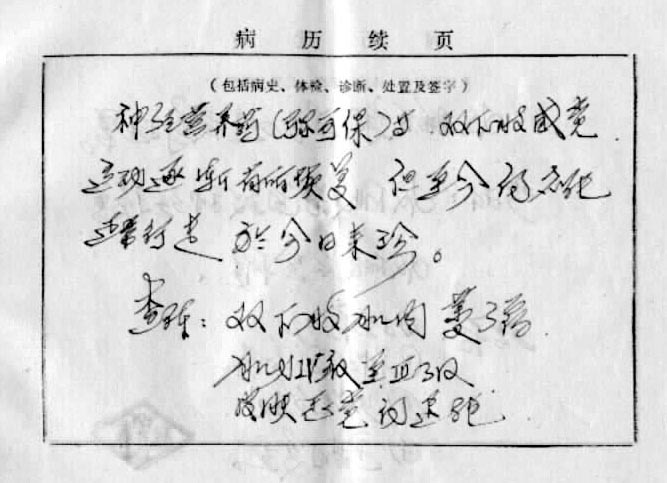 病历续页
(包括病史、体检、诊断、处置及签字)
神经营养药(弥可保)等 双下肢感觉
运动逐渐有所恢复 但至今仍不能
正常行走 于今日来诊。
查体：双下肢肌肉萎缩
肌力级
皮肤感觉